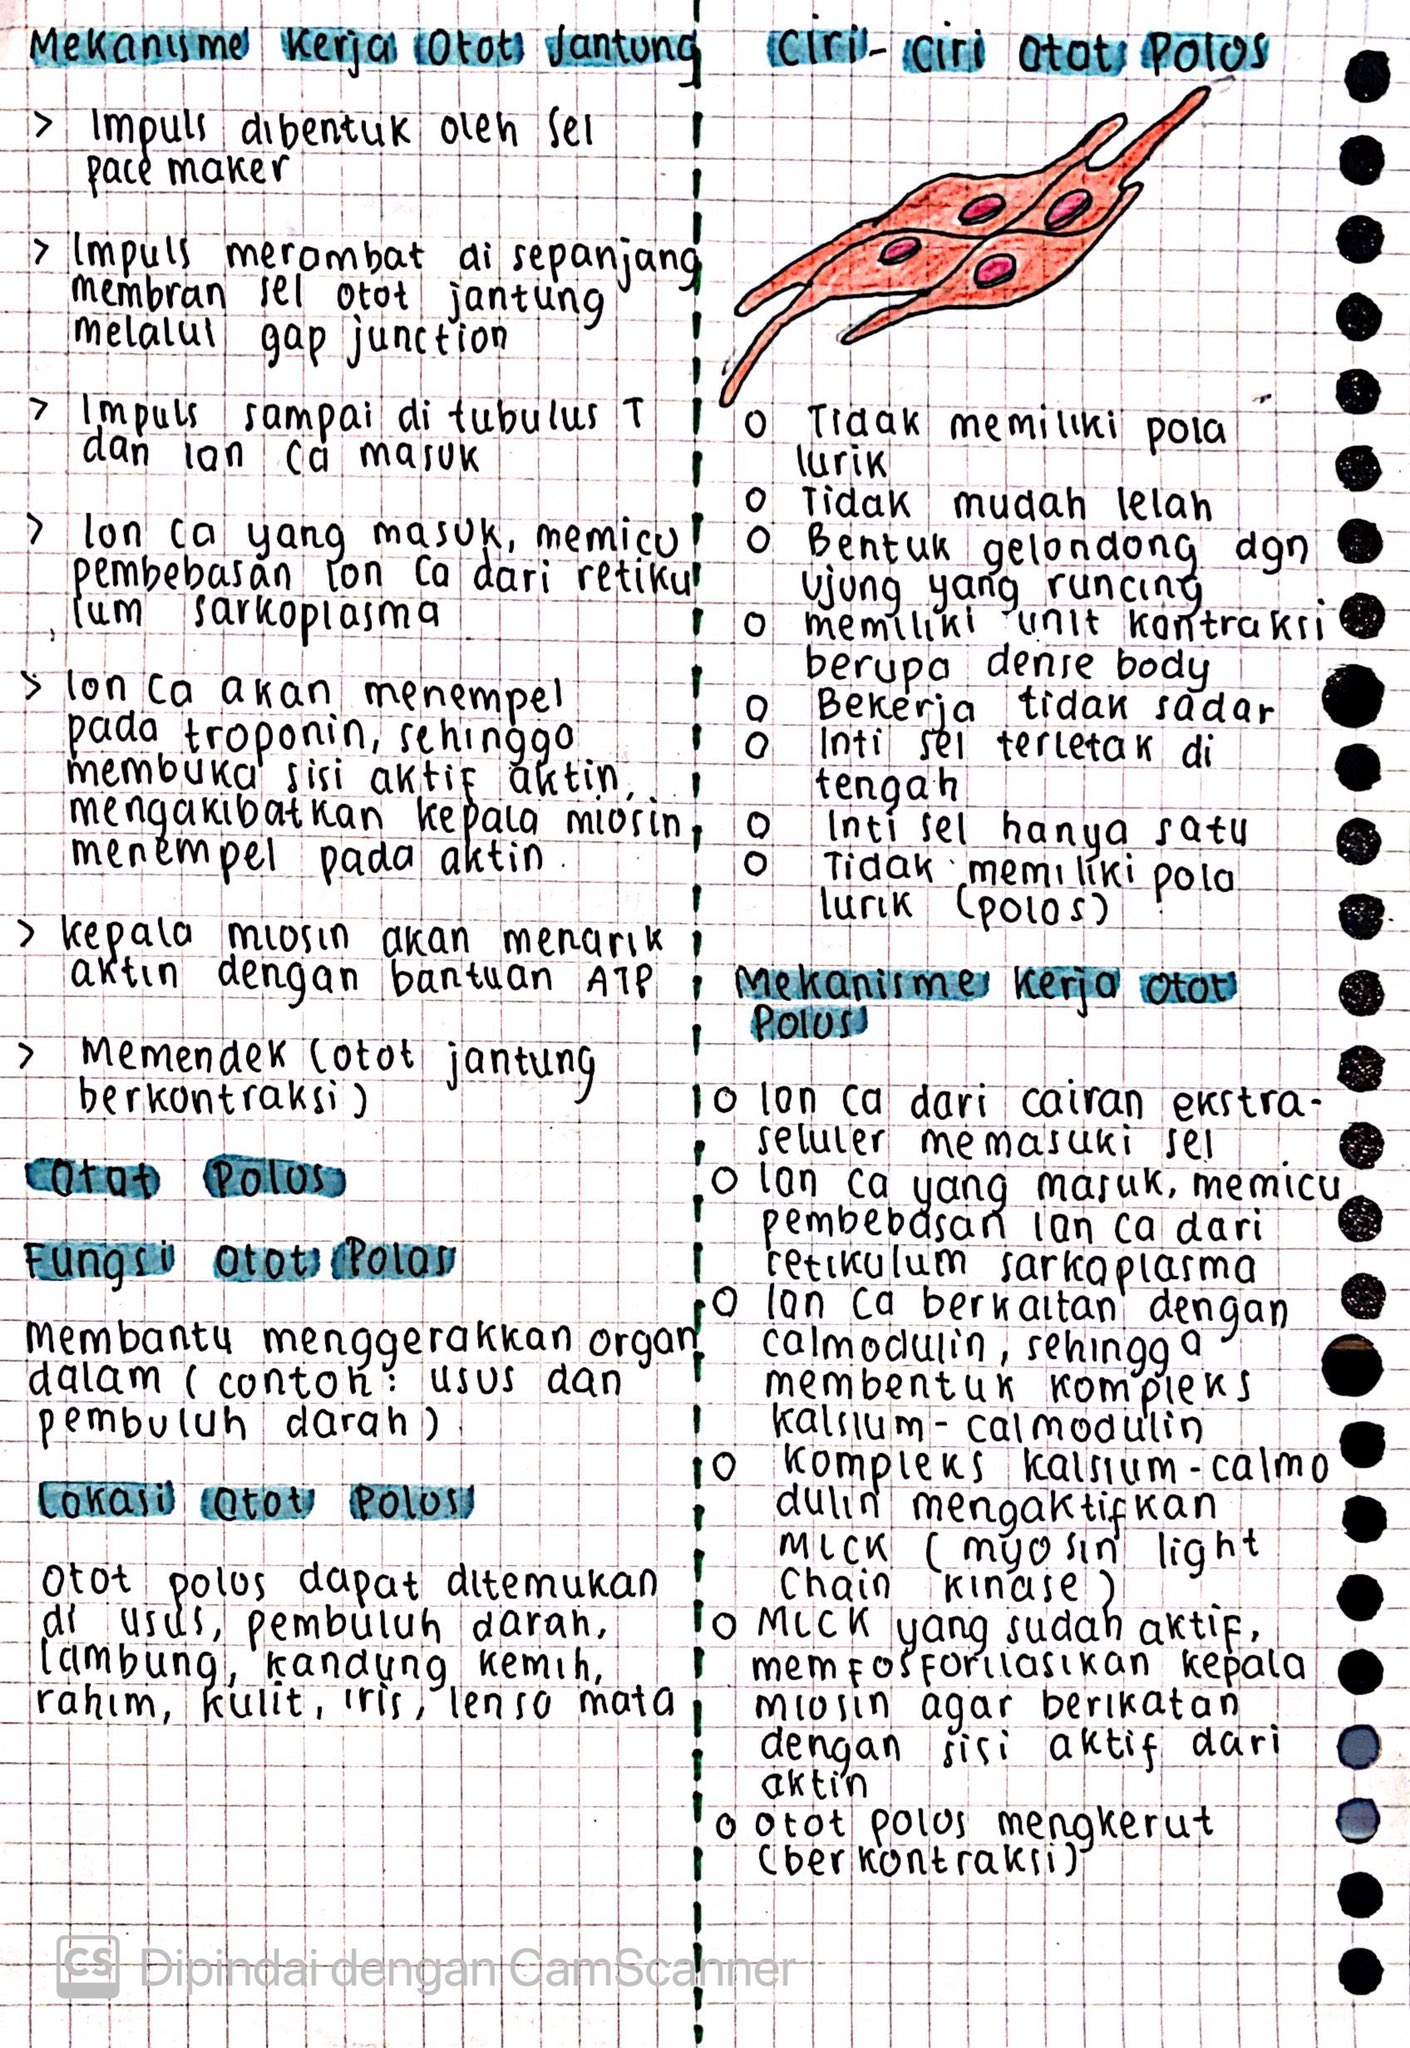 Mekanisme Kerja Otot Jantung
> Impuls dibentuk oleh sel
pace maker
> Impuls merambat di sepanjang
membran sel otot jantung
melalui gap junction
> Impuls sampai di tubulus T
dan ion Ca masuk
> Ion Ca yang masuk, memicu
pembebasan ion Ca dari retiku
lum sarkoplasma
> Ion Ca akan menempel
pada troponin, sehingga
membuka sisi aktif aktin,
mengakibatkan kepala miosin
menempel pada aktin.
> Kepala miosin akan menarik
aktin dengan bantuan ATP
> Memendek (otot jantung
berkontraksi)
Otot Polos
Fungsi Otot Polos
Membantu menggerakkan organ
dalam (contoh: usus dan
pembuluh darah)
Lokasi Otot Polos
Otot polos dapat ditemukan
di usus, pembuluh darah,
lambung, kandung kemih,
rahim, kulit, iris, lensa mata
Ciri-Ciri Otot Polos
o Tidak memiliki pola
lurik
o Tidak mudah lelah
o Bentuk gelondong dgn
ujung yang runcing
o memiliki unit kontraksi
berupa dense body
o Bekerja tidak sadar
o Inti sel terletak di
tengah
o Inti sel hanya satu
o Tidak memiliki pola
lurik (polos)
Mekanisme Kerja Otot
Polos
o Ion Ca dari cairan ekstra-
seluler memasuki sel
o Ion Ca yang masuk, memicu
pembebasan Ion Ca dari
retikulum sarkoplasma
o Ion Ca berkaitan dengan
calmodulin, sehingga
membentuk kompleks
kalsium-calmodulin
o Kompleks kalsium-calmo
dulin mengaktifkan
MLCK (myosin light
Chain kinase)
o MLCK yang sudah aktif,
memfosforilasikan kepala
miosin agar berikatan
dengan sisi aktif dari
aktin
o Otot polos mengkerut
(berkontraksi)
CS Dipindai dengan CamScanner